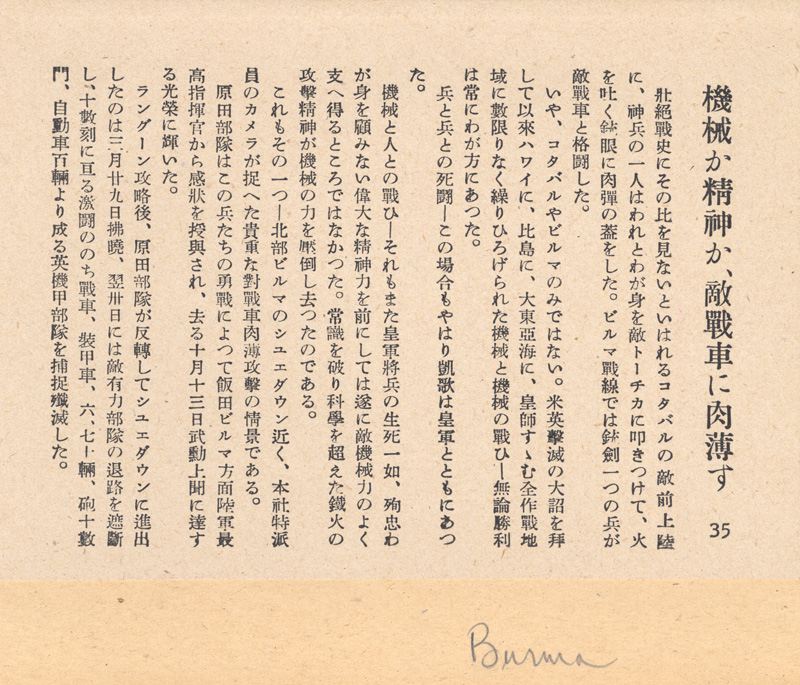 機械か精神か、敵戰車に肉薄す 35
壯絕戰史にその比を見ないといはれるコタバルの敵前上陸
に、神兵の一人はわれとわが身を敵トーチカに叩きつけて、火
を吐く銃眼に肉彈の蓋をした。ビルマ戰線では銃劍一つの兵が
敵戰車と格鬪した。
いや、コタバルやビルマのみではない。米英擊滅の大詔を拜
して以來ハワイに、比島に、大東亞海に、皇師すゝむ全作戰地
域に數限りなく繰りひろげられた機械と機械の戰ひ―無論勝利
は常にわが方にあつた。
兵と兵との死鬪―この場合もやはり凱歌は皇軍とともにあつ
た。
機械と人との戰ひ―それもまた皇軍將兵の生死一如、殉忠わ
が身を顧みない偉大な精神力を前にしては遂に敵機械力のよく
支へ得るところではなかつた。常識を破り科學を超えた鐵火の
攻擊精神が機械の力を壓倒し去つたのである。
これもその一つ―北部ビルマのシユエダウン近く、本社特派
員のカメラが捉へた貴重な對戰車肉薄攻擊の情景である。
原田部隊はこの兵たちの勇戰によつて飯田ビルマ方面陸軍最
高指揮官から感狀を授與され、去る十月十三日武勳上聞に達す
る光榮に輝いた。
ラングーン攻略後、原田部隊が反轉してシユエダウンに進出
したのは三月廿九日拂曉、翌卅日には敵有力部隊の退路を遮斷
し、十數刻に亘る激鬪ののち戰車、裝甲車、六、七十輛、砲十數
門、自動車百輛より成る英機甲部隊を捕捉殲滅した。
Burma